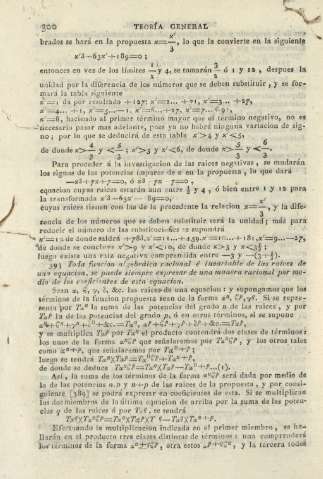 200 TEORÍA GENERAL
brados se hará en la propuesta x=x'/3, lo que la convierte en la siguiente
x'3−63x'+189=0;
entonces en vez de los límites 1/3 y 4, se tomarán 2/3 ó 1 y 12, despues la
unidad por la diferencia de los números que se deben substituir, y se for-
mará la tabla siguiente
x'=1, da por resultado +127; x'=2... +71, x'=3... +27,
x'=4... +1, x'=5...−1, x'=6...+27, x'=7...+9..
x'=8, haciendo al primer término mayor que el término negativo, no es
necesario pasar mas adelante, pues ya no habrá ninguna variacion de sig-
no; por lo que se deducirá de esta tabla x'>4 y x'<5,
de donde x>4/3 y x<5/3; x'>5 y x'<6, de donde x>5/3 y x<6/3.
Para proceder á la investigacion de las raices negativas, se mudarán
los signos de las potencias impares de x en la propuesta, lo que dará
−x3+7x+7=0, ó x3−7x−7=0,
equacion cuyas raices estarán aun entre 1/3 y 4, ó bien entre 1 y 12 para
la transformada x'3−63x'−189=0,
cuyas raices tienen con las de la precedente la relacion x=x'/3, y la dife-
rencia de los números que se deben substituir será la unidad; más para
reducir el número de las substituciones se supondrá
x'=12 de donde saldrá +783, x'=11...+459, x'=10...+181, x'=9...−27,
de donde se concluye x'>9 y x'<10, de donde x>3 y x<3 1/3;
luego existe una raiz negativa comprendida entre −3 y −(3+1/3).
393 Toda funcion algebráica racional é invariable de las raices de
una equacion, se puede siempre expresar de una manera racional por me-
dio de los coeficientes de esta equacion.
Sean α, ε, γ, δ, &c. las raices de una equacion: y supongamos que los
términos de la funcion propuesta sean de la forma
senta por Tαn la suma de las potencias del grado n de las raices, y por
Tαp la de las potencias del grado p, ó en otros términos, si se supone
y se multiplica Tαp por Tαn el producto contendrá dos clases de términos:
los unos de la forma αnεp que señalaremos por Tαnεp, y los otros tales
como αn+p, que señalaremos por Tαn+p;
luego se tendrá TαnXTαp=Tαnεp+Tαn+p,
de donde se deduce Tαnεp=TαnXTαp−Tαn+p...(1).
Así, la suma de los términos de la forma αnεp será dada por medio de
la de las potencias n, p y n+p de las raices de la propuesta, y por consi-
guiente (389) se podrá expresar en coeficientes de esta. Si se multiplican
los dos miembros de la última equacion de arriba por la suma de las poten-
cias q de las raices ó por Tαq, se tendrá
Efectuando la multiplicacion indicada en el primer miembro, se ha-
llarán en el producto tres clases distintas de términos: una comprenderá
los términos de la forma αn+qεp, otra estos αp+qεn, y la tercera todos